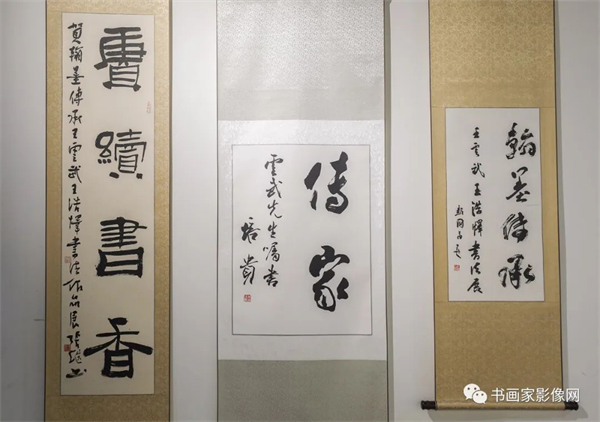 賡續書香
賀翰墨傳承王雲武王浩書法作品展張繼書
傳家
雲武先生囑書
培貴
翰墨傳承
王雲武王浩書法展
书画家影像网